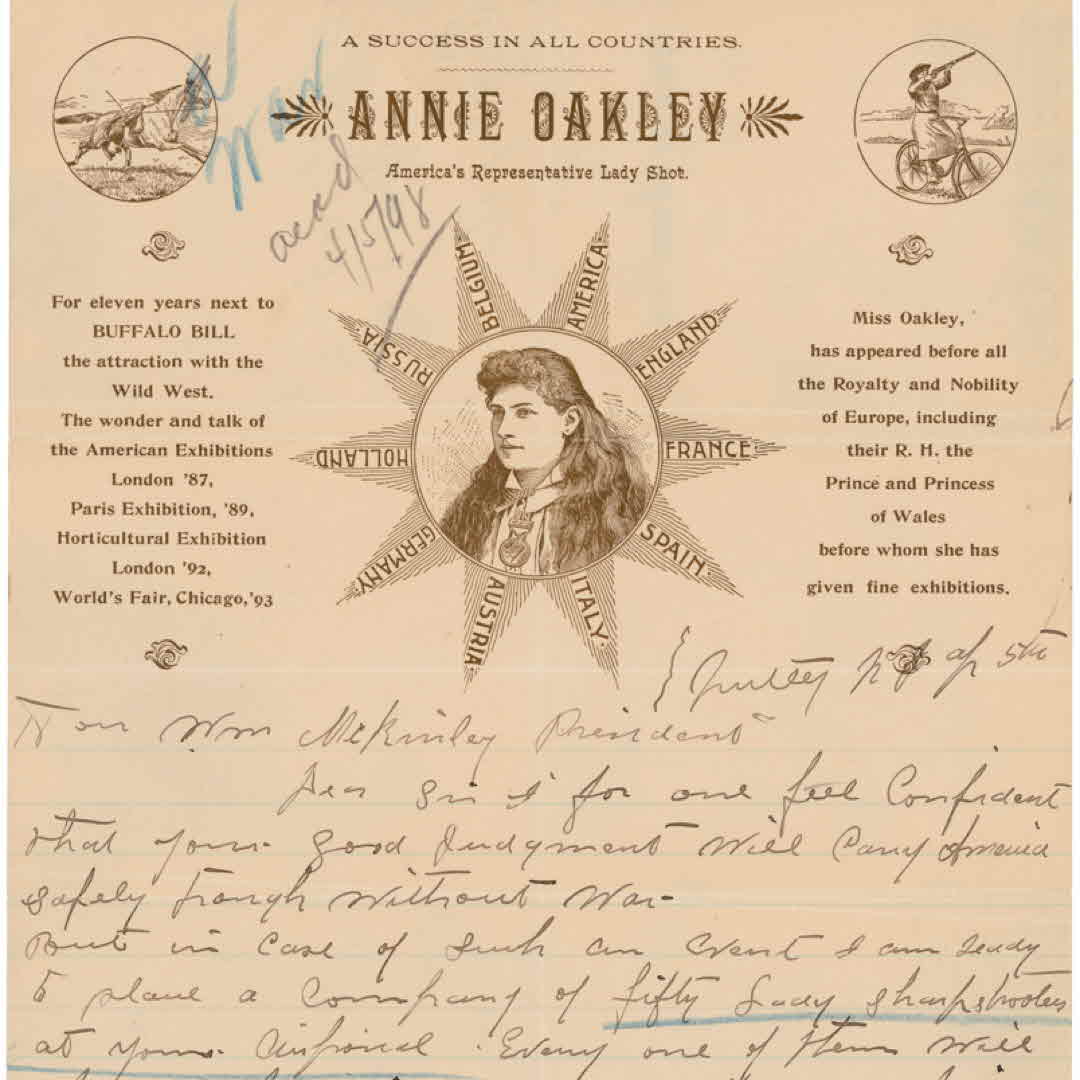 A SUCCESS IN ALL COUNTRIES.
ANNIE OAKLEY
America's Representative Lady Shot.
War
ackd
4/5/98
For eleven years next to
BUFFALO BILL
the attraction with the
Wild West.
The wonder and talk of
the American Exhibitions
London '87,
Paris Exhibition, '89,
Horticultural Exhibition
London '92,
World's Fair, Chicago, '93
BELGIUM.
AMERICA.
ENGLAND
FRANCE.
SPAIN.
ITALY.
AUSTRIA
GERMANY.
HOLLAND
RUSSIA.
Miss Oakley,
has appeared before all
the Royalty and Nobility
of Europe, including
their R. H. the
Prince and Princess
of Wales
before whom she has
given fine exhibitions.
Nutley N J Ap 5th
Hon Wm McKinley President
Dear Sir I for one feel Confident
that your good Judgment will Carry America
safely through without War-
But in Case of Such an Event I am ready
to place a Company of fifty Lady sharpshooters
at your disposal. Every one of them will